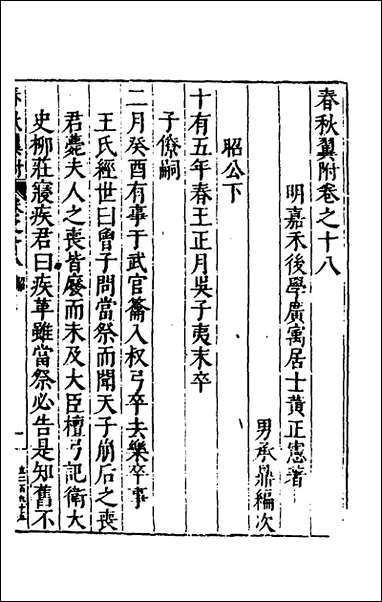 春秋翼附卷之十八
明嘉禾後學廣寓居士黃正憲著
男承鼎編次
昭公下
十有五年春王正月吳子夷末卒
子僚嗣
二月癸酉有事于武宮籥入叔弓卒去樂卒事
王氏經世曰曾子問當祭而聞天子崩后之喪
君薨夫人之喪皆廢而未及大臣檀弓記衛大
史柳莊寢疾君曰疾革雖當祭必告是知舊不
春秋翼附